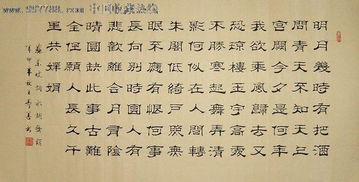 明月幾時有把酒
問青天不知天上
宮闕今夕是何年
我欲乘風歸去又
恐瓊樓玉宇高處
不勝寒起舞弄清
影何似在人間轉
朱閣低綺戶照無
眠不應有恨何事
長向別時圓人有
悲歡離合月有陰
晴圓缺此事古難
全但願人長久千
里共嬋娟
蘇東坡詞水調歌頭